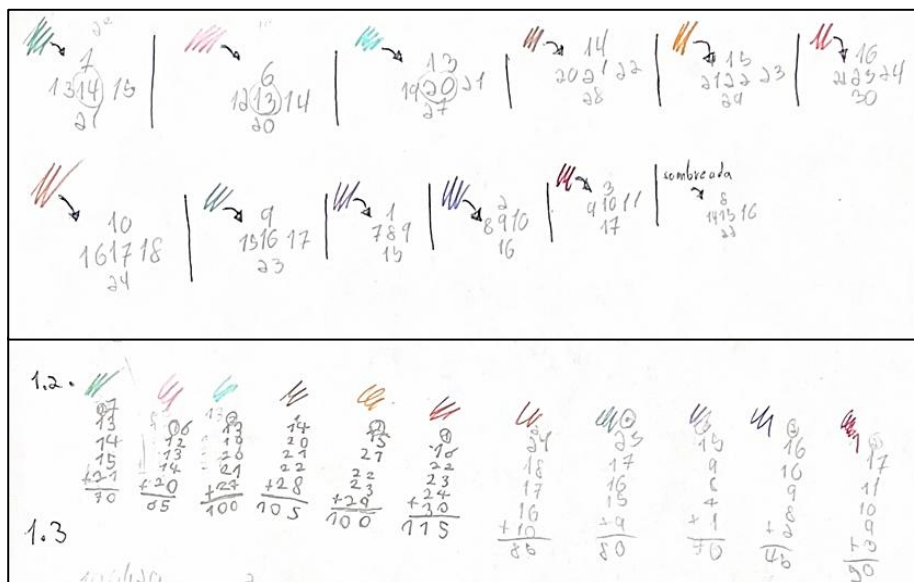 7
13 14 15
21
6
12 13 14
20
13
19 20 21
27
14
20 21 22
28
15
21 22 23
29
16
23 24
30
10
16 17 18
24
9
15 16 17
23
1
7 8 9
15
2
8 9 10
16
3
9 10 11
17
sombreada
8
14 15 16
22
1.2.
07
13
14
15
+21
70
06
12
13
14
+20
65
13
19
20
21
+27
100
14
20
21
22
+28
105
15
21
22
23
+29
100
16
22
23
24
+30
115
24
18
17
16
+10
85
23
17
16
15
+9
80
15
9
+1
16
10
9
8
+2
45
17
11
10
9
+3
50
1.3